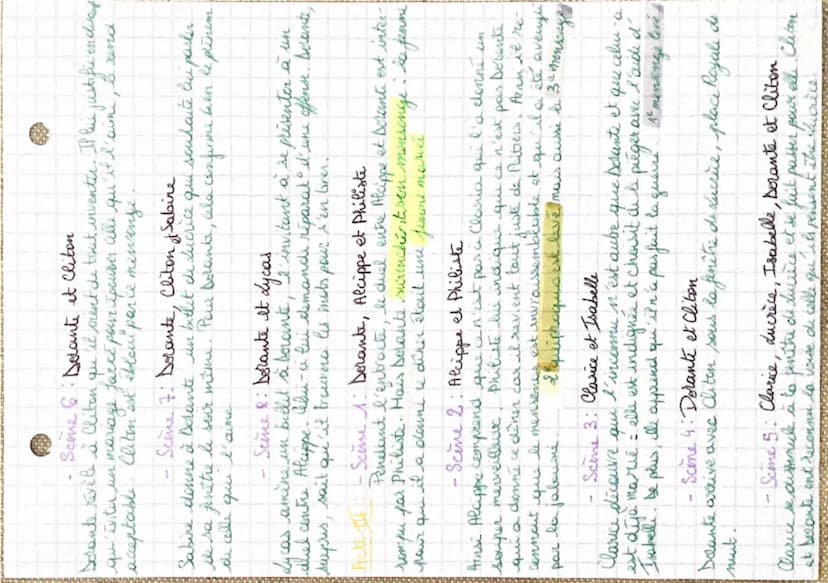 - Scène 6 : Dorante et Cliton
Dorante révèle à Cliton qu'il vient de tout inventer. Il lui justifie en disant
qu'éviter un mariage forcé pour épouser celle qu'il l'aime, le rend
acceptable. Cliton est ébloui par ce mensonge.
- Scène 7 : Dorante, Cliton et Sabine
Sabine donne à Dorante un billet de Lucrèce qui souhaite lui parler
à sa fenêtre le soir même. Pour Dorante, cela confirme bien le prénom
de celle qu'il aime
- Scène 8 : Dorante et Lycas
Lycas amène un billet à Dorante, l'invitant à se présenter à un
duel contre Alcippe. Celui-ci lui demande réparat° d'une offense. Dorante,
surpris, sait qu'il trouvera les mots pour s'en tirer.
Acte III : - Scène 1 : Dorante, Alcippe et Philiste
Pendant l'entracte, le duel entre Alcippe et Dorante est inter-
rompu par Philiste. Mais Dorante surenchérit son mensonge : la femme
pour qui il a donné ce dîner était une femme mariée
- Scène 2 : Alcippe et Philiste
Ainsi Alcippe comprend que ce n'est pas à Clarice qu'il a donné un
souper merveilleux. Philiste lui indique que ce n'est pas Dorante
qui a donné ce dîner car il revient tout juste de Poitiers. Ainsi il re-
connait que le mensonge est invraisemblable et qu'il a été aveuglé
par la jalousie. 2e quiproquo est levé mais aussi le 3e mensonge
- Scène 3 : Clarice et Isabelle
Clarice découvre que l'inconnu n'est autre que Dorante et que celui-ci
est déjà marié : elle est indignée et choisit de le piéger avec l'aide d'
Isabelle. De plus, elle apprend qu'il n'a pas fait la guerre. mensonge levé
- Scène 4 : Dorante et Cliton
Dorante arrive avec Cliton sous la fenêtre de Lucrèce, place Royale de
nuit.
- Scène 5 : Clarice, Lucrèce, Isabelle, Dorante et Cliton
Clarice se dissimule à la fenêtre de Lucrèce et se fait passer pour elle. Cliton
et Dorante ont reconnu la voix de celle qu'ils pensent être Lucrèce